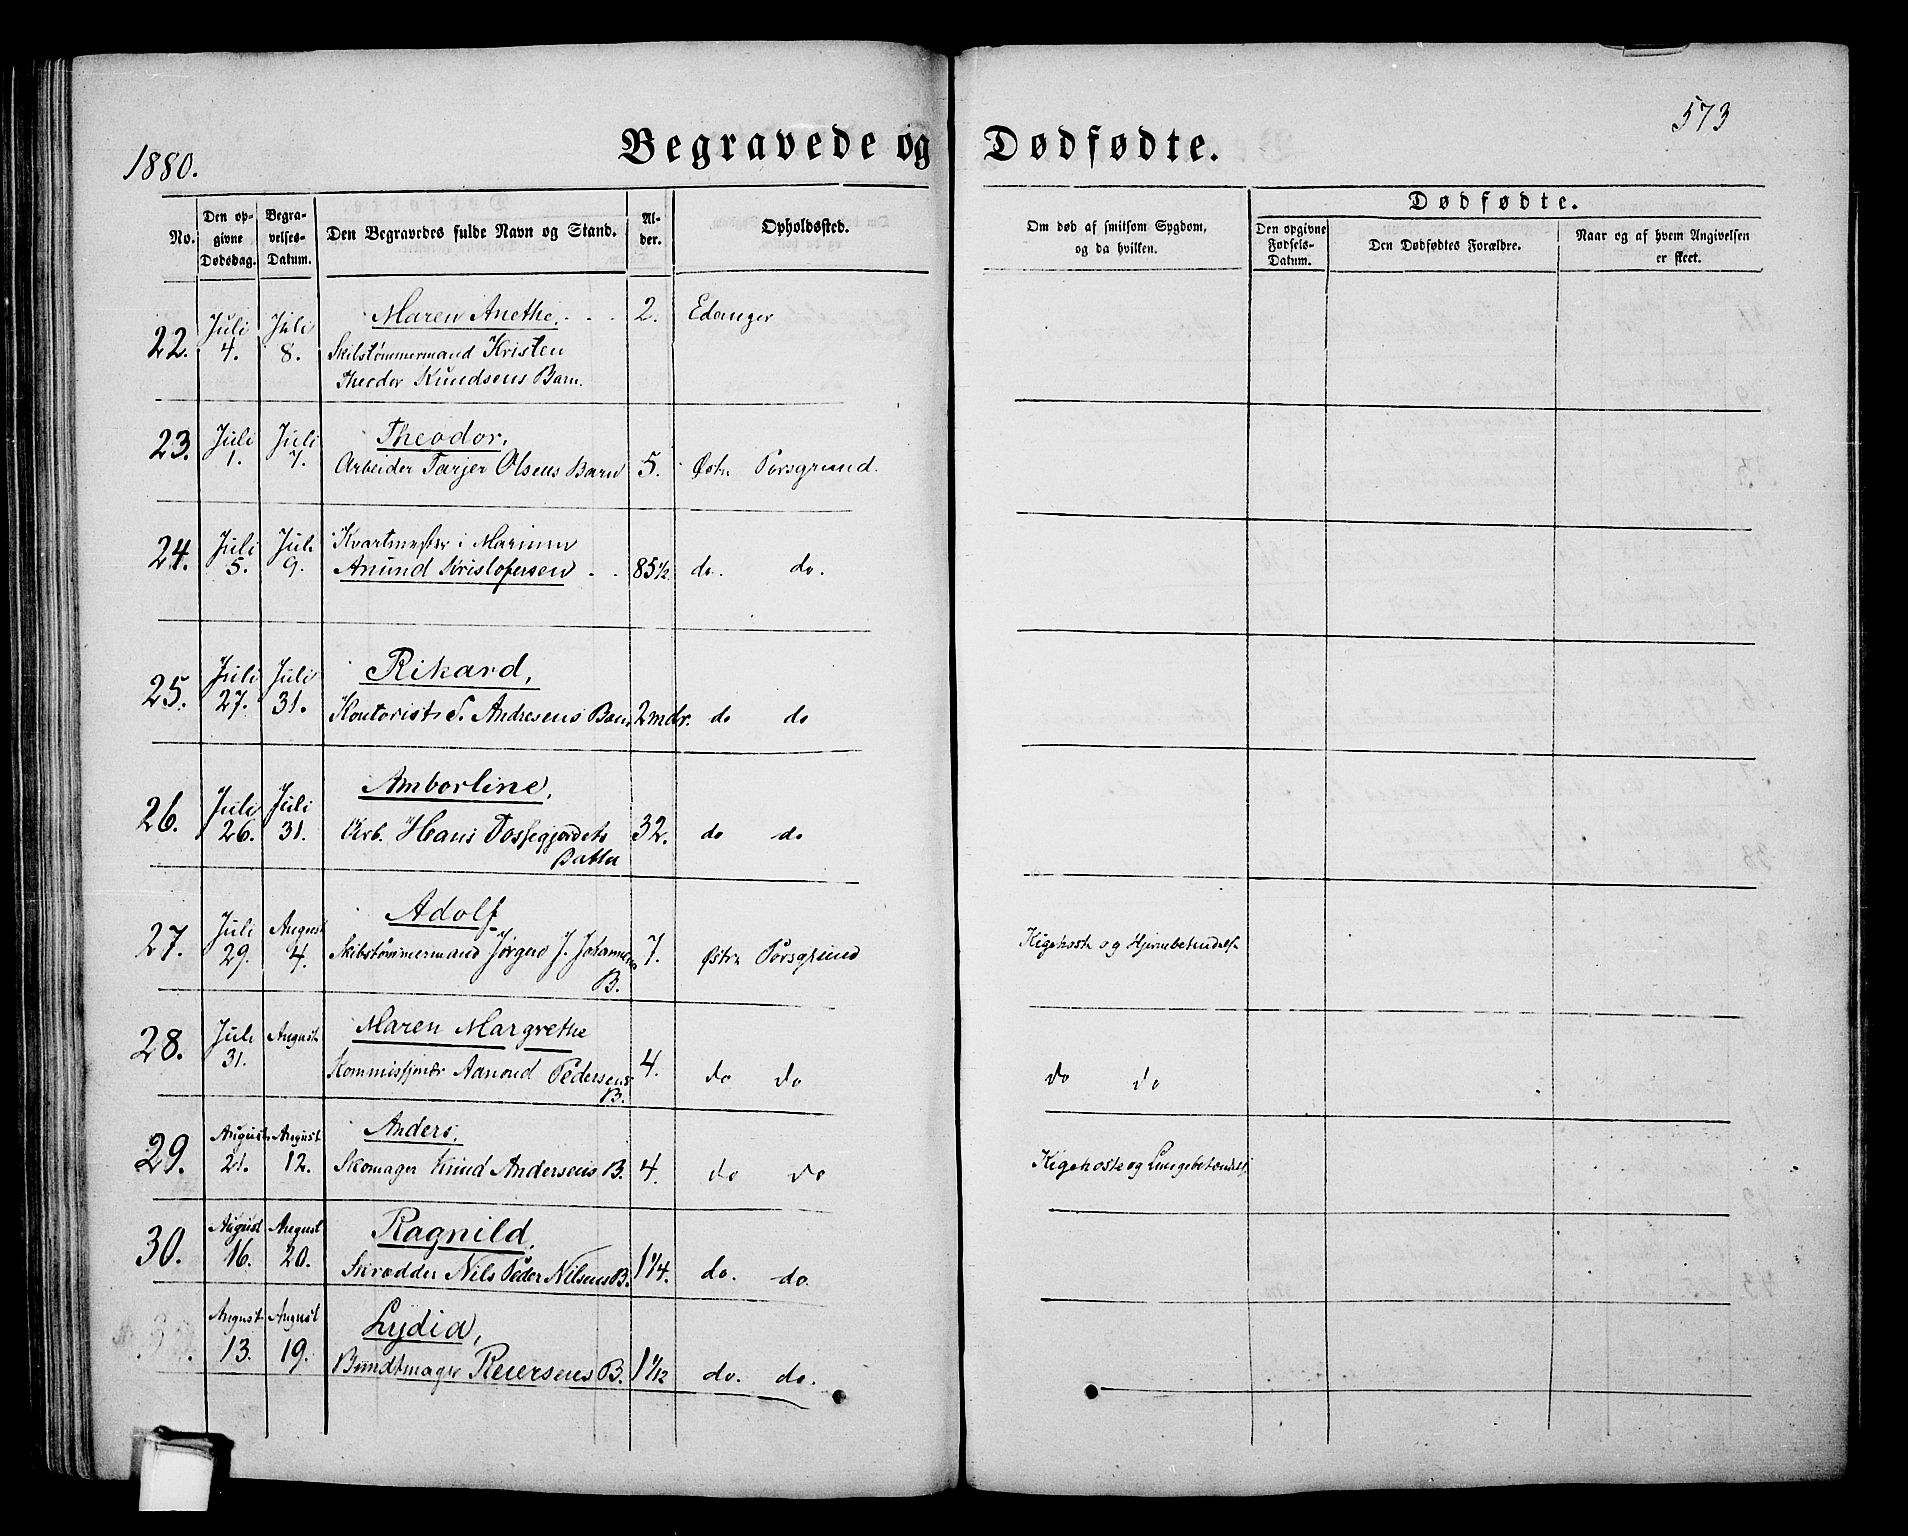 1880.
573
Begravede og Dødfødte.
No.
Den opgivne Dødsdag.
Begravelses-Datum.
Den Begravedes fulde Navn og Stand.
Alder.
Opholdssted.
Om død af smitsom Sygdom, og da hvilken.
Dødfødte.
Den opgivne Fødsels-Datum.
Den Dødfødtes Forældre.
Naar og af hvem Angivelsen er skeet.
22. Juli 4. Juli 8. Maren Anethe, 2. Edanger
Skibstømmermand Kristen
Theodor Knudsens Barn.
23. Juli 1. Juli 7. Theodor,
Arbeider Tarjer Olsens Barn 5. Østre Porsgrund.
24. Juli 5. Juli 9. Kvartmester i Marinen
Anund Kristofersen 85 1/2 do. do.
25. Juli 27. Juli 31. Rikard,
Kontorist S. Andresens Barn 2 mdr. do do
26. Juli 26. Juli 31. Amborline,
Arb. Hans 32. do do
27. Juli 29. August 4. Adolf
Skibstømmermand Jørgen J. Johannesens B. 7. Østre Porsgrund Kigehoste og Hjernebetændelse
28. Juli 31. August Maren Margrethe
Kommisjonær Aanond Pedersens B. 4. do do do do
29. August 21. August 12. Anders,
Skomager Knud Andersens B. 4. do do Kigehoste og Lungebetændelse
30. August 16. August 20. Ragnild,
Skrædder Nils Peder Nilsens B. 1 1/4. do. do.
August 13. August 19. Lydia,
Bundtmager Reiersens B. 1 1/12 do. do.